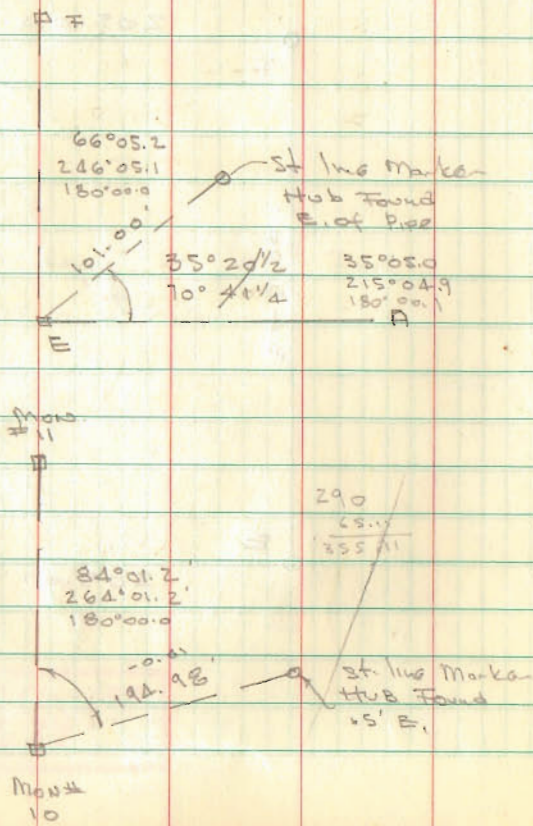 F
66°05.2
246°05.1
180°00.0
St line Marker
Hub Found
E. of Pipe
101.00'
35° 20 1/2
70° 41 1/4
35°05.0
215°04.9
180°00.1
A
E
Mon.
# 11
290
65.11
355.11
84°01.2'
264°01.2'
180°00.0
-0.01
194.98'
St. line Marker
HUB Found
E.
Mon#
10